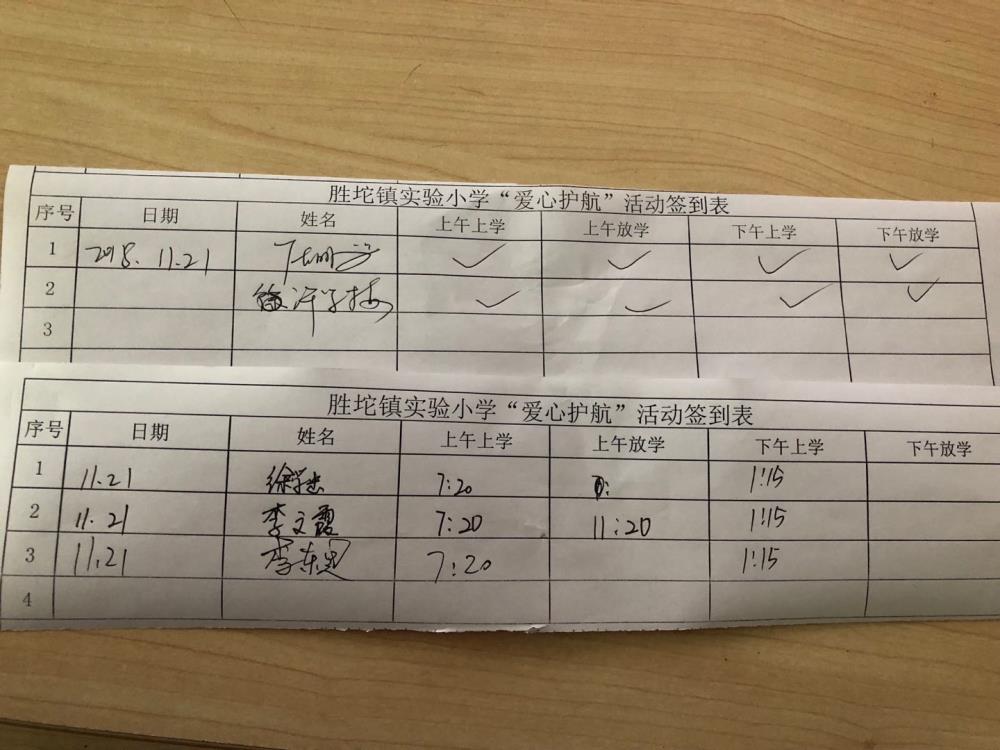 胜坨镇实验小学“爱心护航”活动签到表
序号 日期 姓名 上午上学 上午放学 下午上学 下午放学
1 2018.11.21 ✓ ✓ ✓ ✓
2 ✓ ✓ ✓ ✓
3
胜坨镇实验小学“爱心护航”活动签到表
序号 日期 姓名 上午上学 上午放学 下午上学 下午放学
1 11.21 7:20 1:15
2 11.21 李文霞 7:20 11:20 1:15
3 11.21 7:20 1:15
4